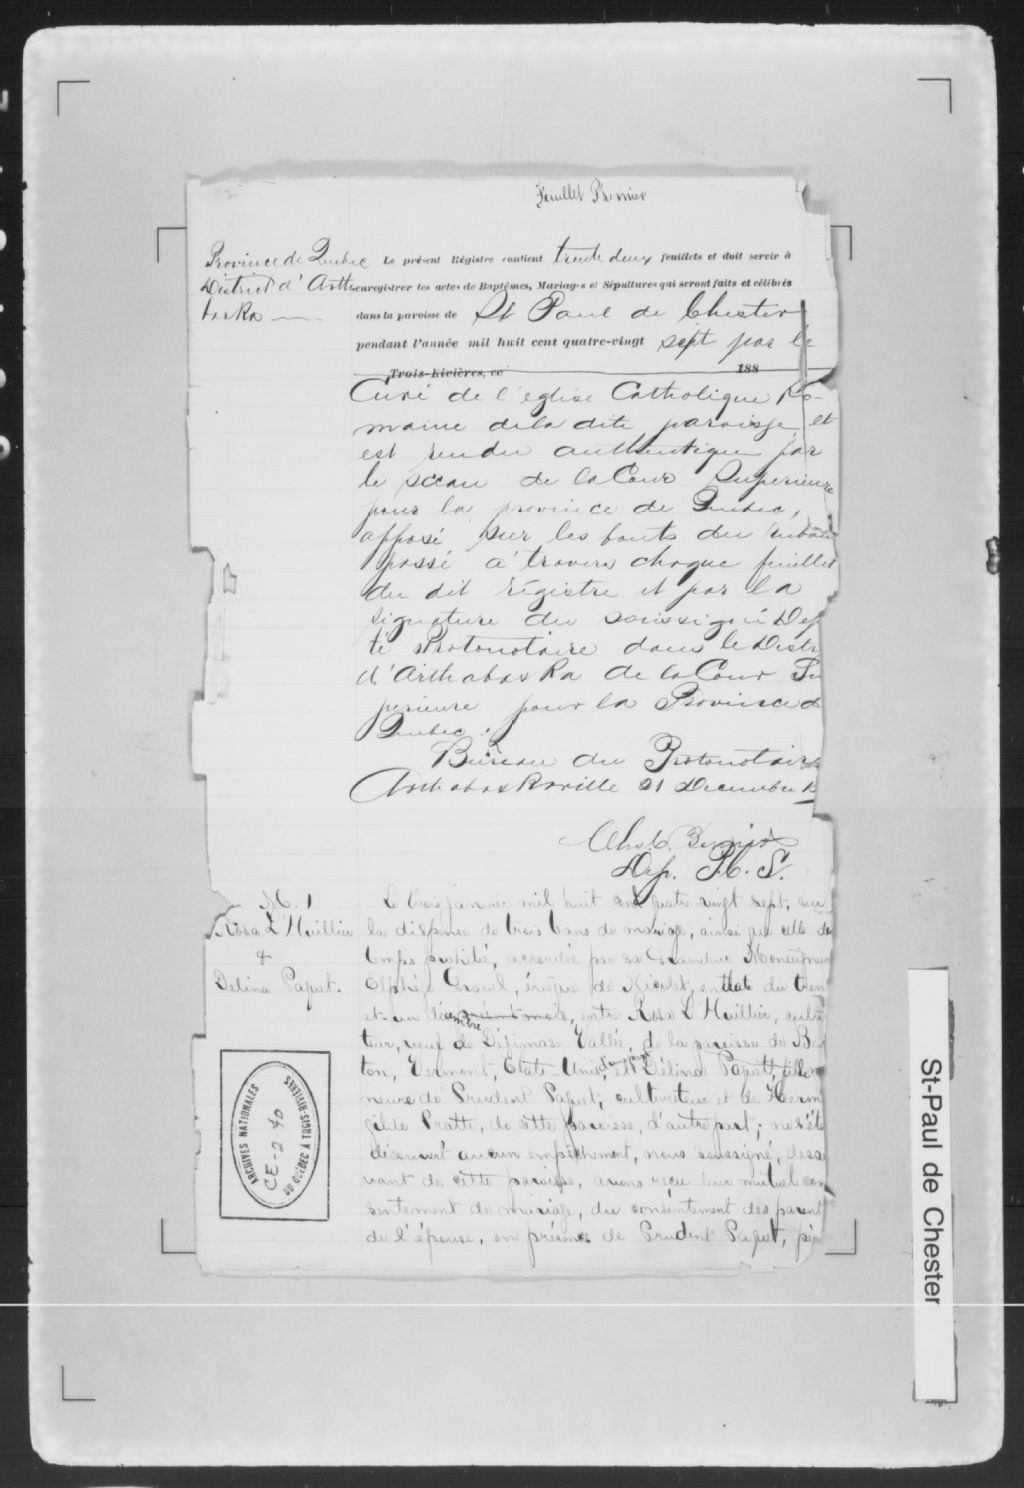 Feuillet Premier
Province de Quebec
District d'Artha
baska
Le présent Régistre contient trente deux feuillets et doit servir à
enregistrer les actes de Baptêmes, Mariages et Sépultures qui seront faits et célébrés
dans la paroisse de St Paul de Chester
pendant l'année mil huit cent quatre-vingt sept par le
Trois-Rivières, ce 188
Curé de l'église Catholique Ro-
maine de la dite paroisse, et
est rendu authentique par
le sceau de la Cour Superieure
pour la province de Quebec,
apposé sur les bouts du ruban
passé à travers chaque feuillet
du dit régistre et par la
signature du soussigné Dep
té Protonotaire dans le Distr
d'Arthabaska de la Cour Su
perieure pour la Province d
Quebec.
Bureau du Protonotaire
Arthabaskaville 21 Decembre
Dep. P. C. S.
M. 1
Rosa L'Huillier
&
Delina Paquet.
Le trois janvier mil huit cent quatre vingt sept, vu
la dispense de trois bans de mariage, ainsi que celle de
temps prohibé, accordée par sa Grandeur Monseigneur
Elphège Gravel, évêque de Nicolet, en date du tren
et-un décembre présent mois, entre Rosa L'Huillier, cultiva
teur, veuf de Vallée, de la paroisse de
ton, Vermont, Etats-Unis, d'une part et Délina Paquet, fille
neure de Prudent Paquet, cultivateur et de Herm
gilde Pratte, de cette paroisse, d'autre part; ne s'ét
découvert aucun empêchement, nous soussigné, desse
vant de cette paroisse, avons reçu leur mutuel con
sentement de mariage, du consentement des parent
de l'épouse, en présence de Prudent Paquet, pè
ARCHIVES NATIONALES
DU QUÉBEC À TROIS-RIVIÈRES
CE-2 40
St-Paul de Chester